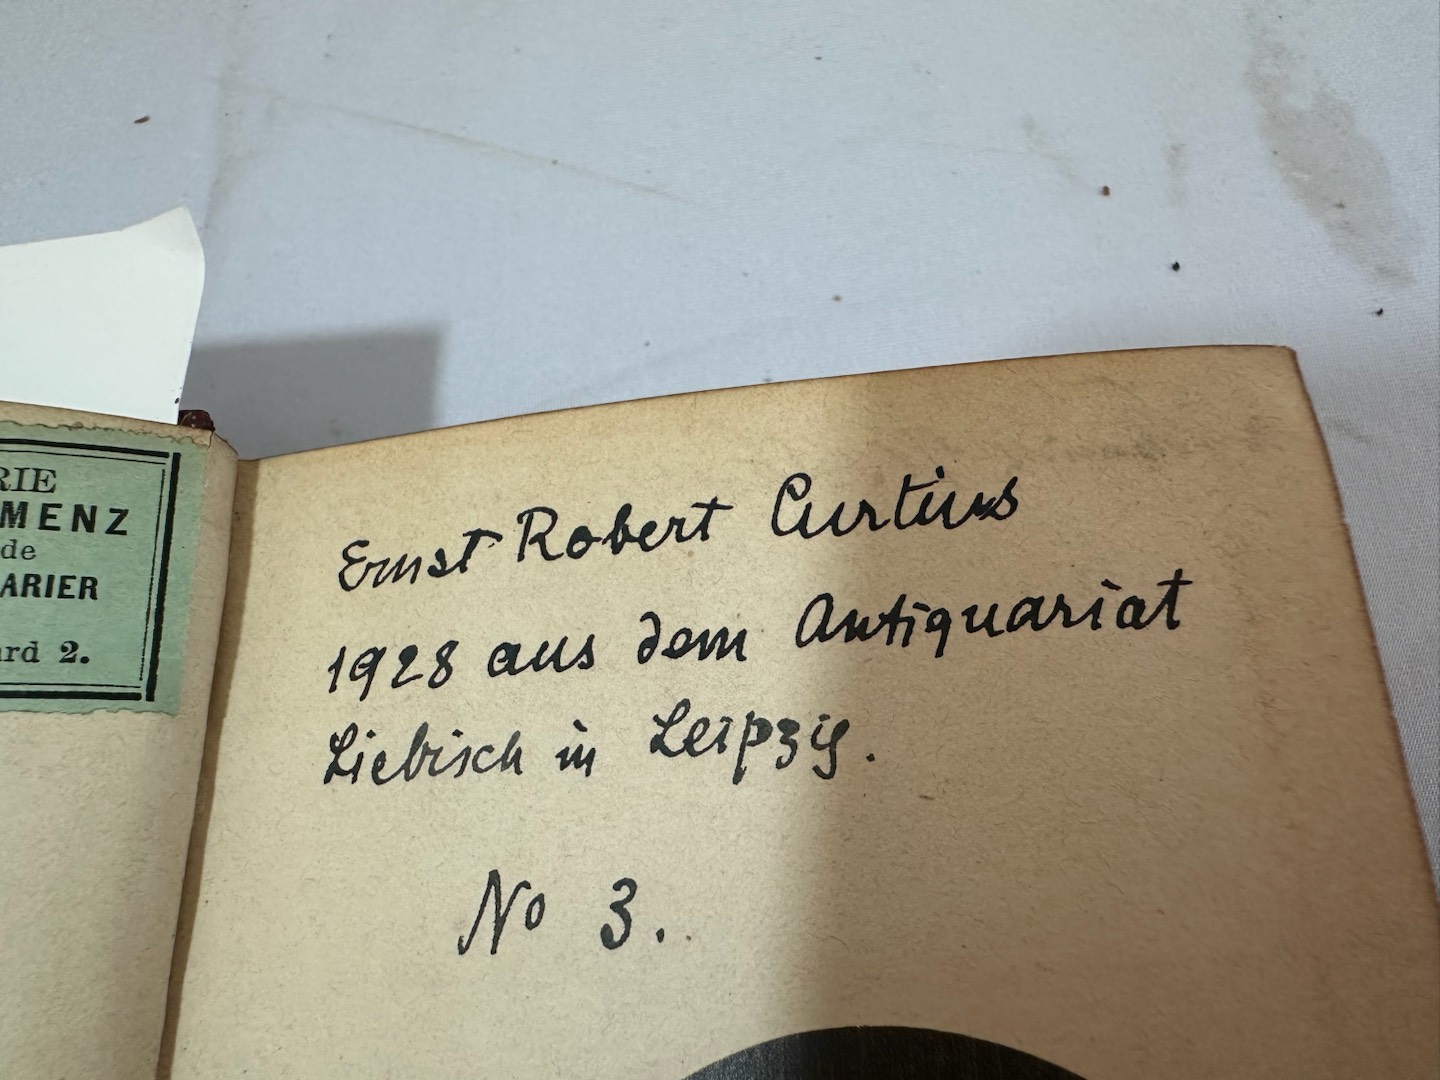 RIE
MENZ
de
ARIER
ard 2.
Ernst Robert Curtius
1928 aus dem Antiquariat
Liebisch in Leipzig.
No 3.